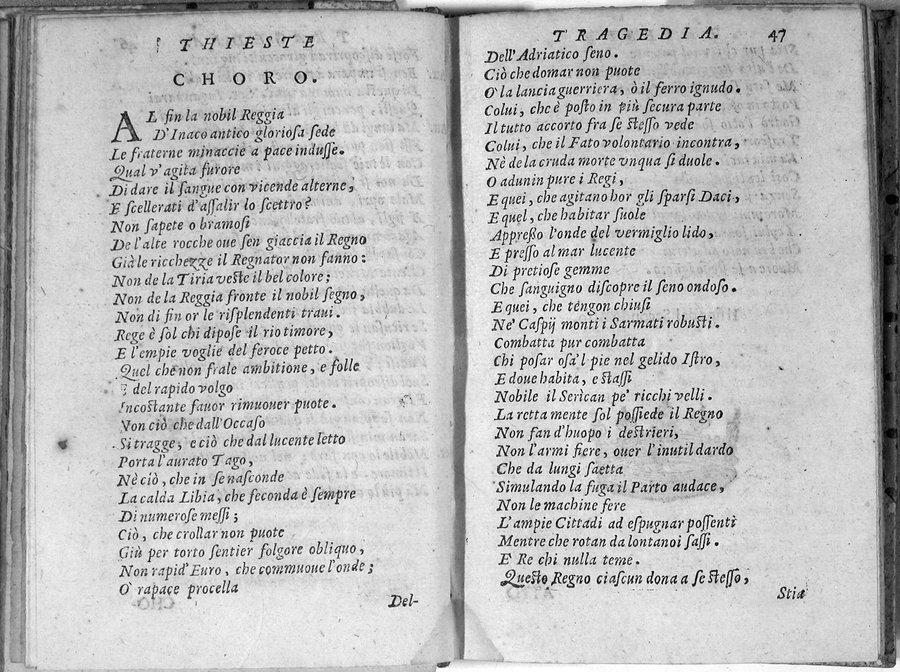 THIESTE
CHORO.
AL fin la nobil Reggia
D'Inaco antico gloriosa sede
Le fraterne minaccie a pace indusse.
Qual v'agita furore
Di dare il sangue con vicende alterne,
E scellerati d'assalir lo scettro?
Non sapete o bramosi
De l'alte rocche oue sen giaccia il Regno
Già le ricchezze il Regnator non fanno:
Non de la Tiria veste il bel colore;
Non de la Reggia fronte il nobil segno,
Non di fin or le risplendenti traui.
Rege è sol chi dipose il rio timore,
E l'empie voglie del feroce petto.
Quel che non frale ambitione, e folle
E del rapido volgo
Incostante fauor rimuouer puote.
Non ciò che dall'Occaso
Si tragge, e ciò che dal lucente letto
Porta l'aurato Tago,
Nè ciò, che in se nasconde
La calda Libia, che feconda è sempre
Di numerose messi;
Ciò, che crollar non puote
Giù per torto sentier folgore obliquo,
Non rapid'Euro, che commuoue l'onde;
O' rapace procella
Del-
TRAGEDIA. 47
Dell'Adriatico seno.
Ciò che domar non puote
O' la lancia guerriera, ò il ferro ignudo.
Colui, che è posto in più secura parte
Il tutto accorto fra se stesso vede
Colui, che il Fato volontario incontra,
Nè de la cruda morte vnqua si duole.
O adunin pure i Regi,
E quei, che agitano hor gli sparsi Daci,
E quel, che habitar suole
Appresso l'onde del vermiglio lido,
E presso al mar lucente
Di pretiose gemme
Che sanguigno discopre il seno ondoso.
E quei, che tengon chiusi
Ne' Caspij monti i Sarmati robusti.
Combatta pur combatta
Chi posar osa'l pie nel gelido Istro,
E doue habita, e stassi
Nobile il Serican pe' ricchi velli.
La retta mente sol possiede il Regno
Non fan d'huopo i destrieri,
Non l'armi fiere, ouer l'inutil dardo
Che da lungi saetta
Simulando la fuga il Parto audace,
Non le machine fere
L'ampie Cittadi ad espugnar possenti
Mentre che rotan da lontano i sassi.
E' Re chi nulla teme.
Questo Regno ciascun dona a se stesso,
Stia